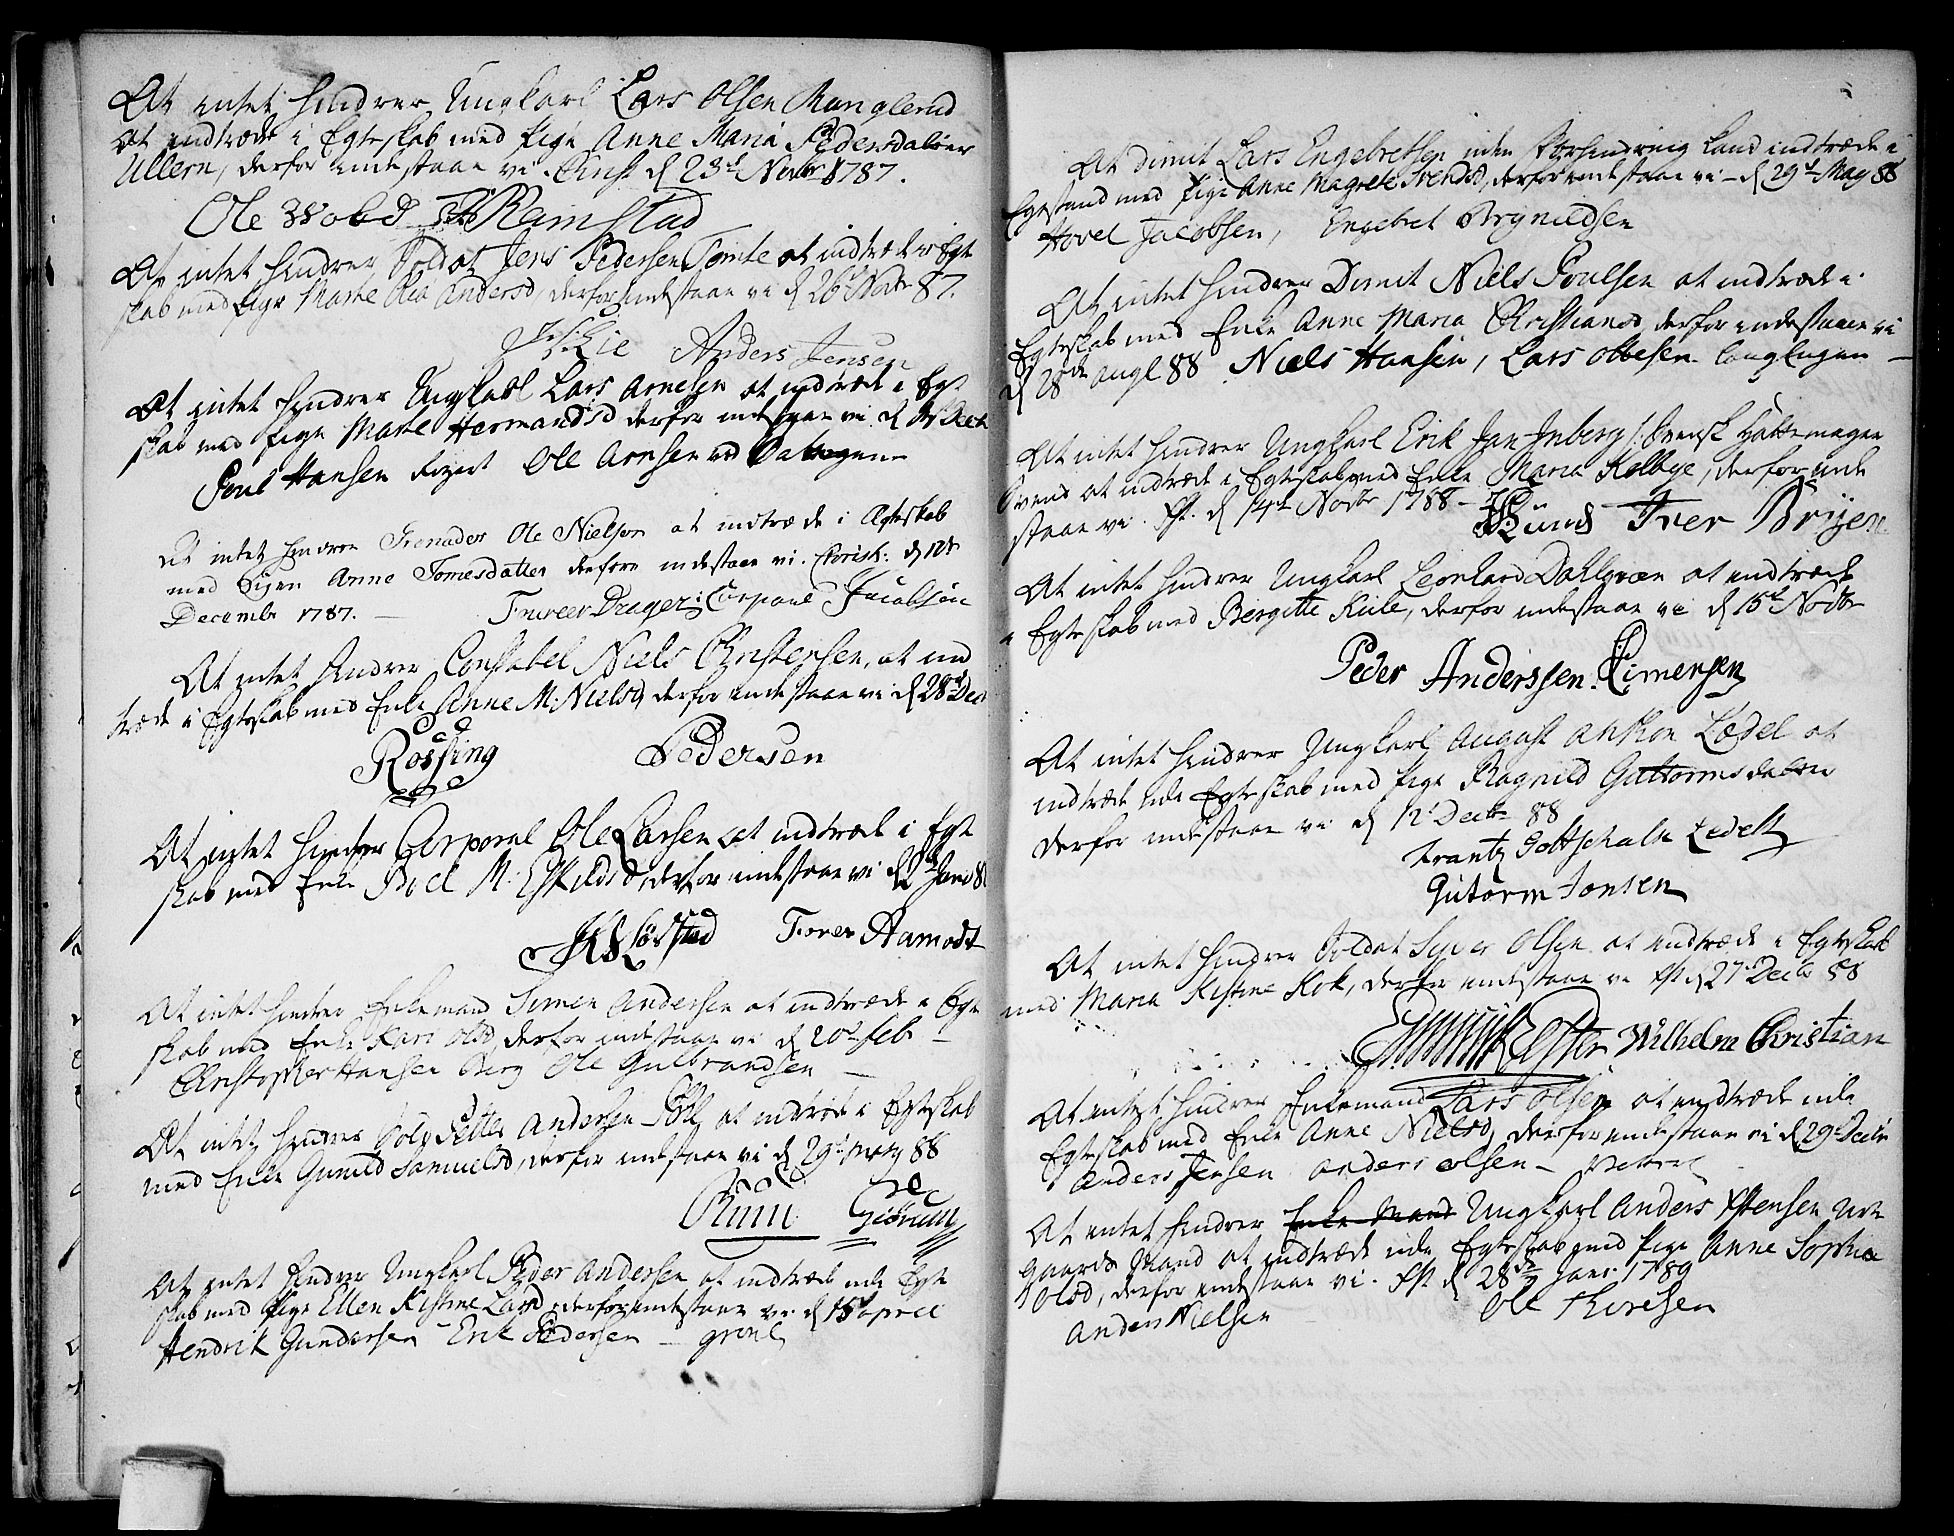 At intet hindrer Ungkarl Lars Olsen Runglerud
at indtræde i Egteskab med Pige Anne Maria Pedersdatter
Ullern, derfor indestaae vi. Christ d 23d Novbr 1787.
Ole Ramstad
At intet hindrer Soldat Jens Pedersen Tomte at indtræde i Egte
skab med Pige Marte Andersd, derfor indestaae vi d 26 Novbr 87.
Lie Anders Jensen
At intet hindrer Ungkarl Lars Arnesen at indtræde i Egte
skab med Pige Marte Hermandsd derfor indestaae vi d Dec
Poul Hansen Ole Arnsen
At intet hindrer Grenader Ole Nielsen at indtræde i Ægteskab
med Pigen Anne Tomesdatter derfore indestaae vi. Christ: d 12t
December 1787. Fureer Drager: Corporal Jacobsen
At intet hindrer Constabel Niels Christensen, at ind
træde i Egteskab med Enke Anne M: Nielsd, derfor indestaae vi d 28d Dec
Rossing Pedersen
At intet hindrer Corporal Ole Larsen at indtræde i Egte
skab med Enke Boel M: Eskildsd, derfor indestaae vi d Janv 88
Torer Aamodt
At intet hindrer Enkemand Simen Andersen at indtræde i Egte
skab med Enke Kari Olsd, derfor indestaae vi d 20d Feb
Christopher Hansen Berg Ole Gulbrandsen
At intet hindrer Sold Petter Andersen at indtræde i Egteskab
med Enke Gunild Samuelsd, derfor indestaae vi d 29d 88
At intet hindrer Ungkarl Peder Andersen at indtræde udi Egte
skab med Pige Ellen Kistine Larsd, derfor indestaae vi d 15 April
Hendrik Gundersen Erik Pedersen
At dimit Lars Engebretsen uden Forhindring kand indtræde i
Egtestand med Pige Anne Magrete Svendsd, derfor indestaae vi - d 29d May 88
Hovel Jacobsen, Engebret Brynildsen
At intet hindrer Dimit Niels Poulsen at indtræde i
Egteskab med Enke Anne Maria Christiansd, derfor indestaae vi
d 28de Augl 88 Niels Hansen, Lars Olsen
At intet hindrer Ungkarl Erik Jan Inberg Svensk Hattemager
Svend at indtræde i Egteskab med Enke Maria Kolbye, derfor inde
staae vi. Xst. d 14de Novbr 1788 - Iver Bryen
At intet hindrer Ungkarl Leonhard Dahlgræn at indtræde
i Egteskab med Bergitte Kiile, derfor indestaae vi d 15d Novbr
Peder Anderssen
At intet hindrer Ungkarl August Ledel at
indtræde udi Egteskab med Pige Ragnild Guttormsdatter
derfor indestaae vi d 12 Decbr 88
Frantz Gottschalk Ledell
Gutorm Jonsen
At intet hindrer Soldat Syver Olsen at indtræde i Egteskab
med Maria Kistine Kok, derfor indestaae vi Xst d 27 Decbr 88
Wilhelm Christian
At intet hindrer Enkemand Lars Olsen at indtræde udi
Egteskab med Enke Anne Nielsd, derfor indestaae vi d 29 Decbr
Anders Jensen Anders Olsen
At intet hindrer Enke Mand Ungkarl Anders Xstensen
gaards Mand at indtræde udi Egteskab med Pige Anne Sophia
Olsd, derfor indestaae vi. Xst d 28de Janr. 1789
Anders Nielsen Ole Thoresen